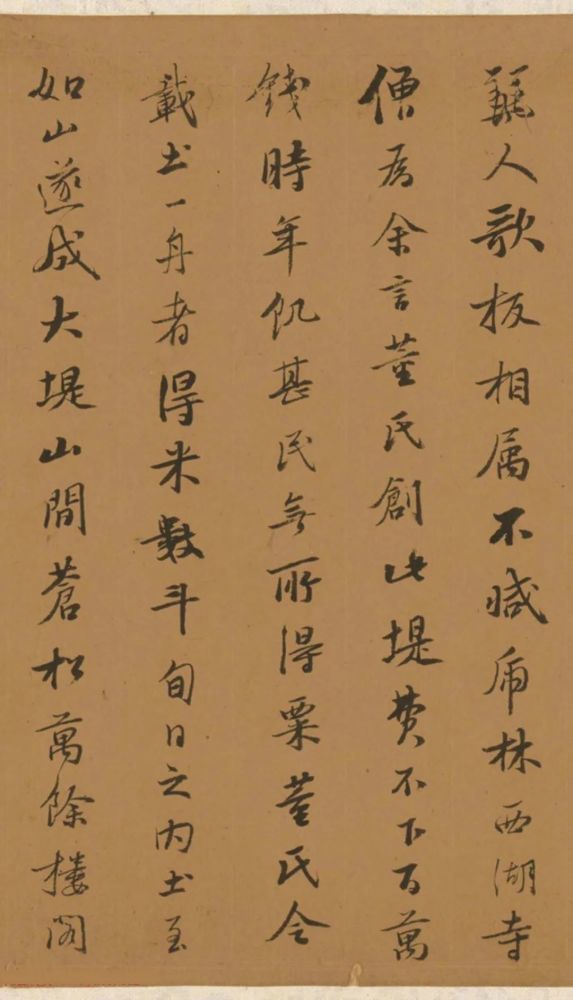 麗人歌板相属不减虎林西湖寺
僧為余言董氏創此堤費不下百萬
錢時年饥甚民無所得粟董氏令
載土一舟者得米數斗旬日之内土至
如山遂成大堤山間蒼松萬餘樓閣